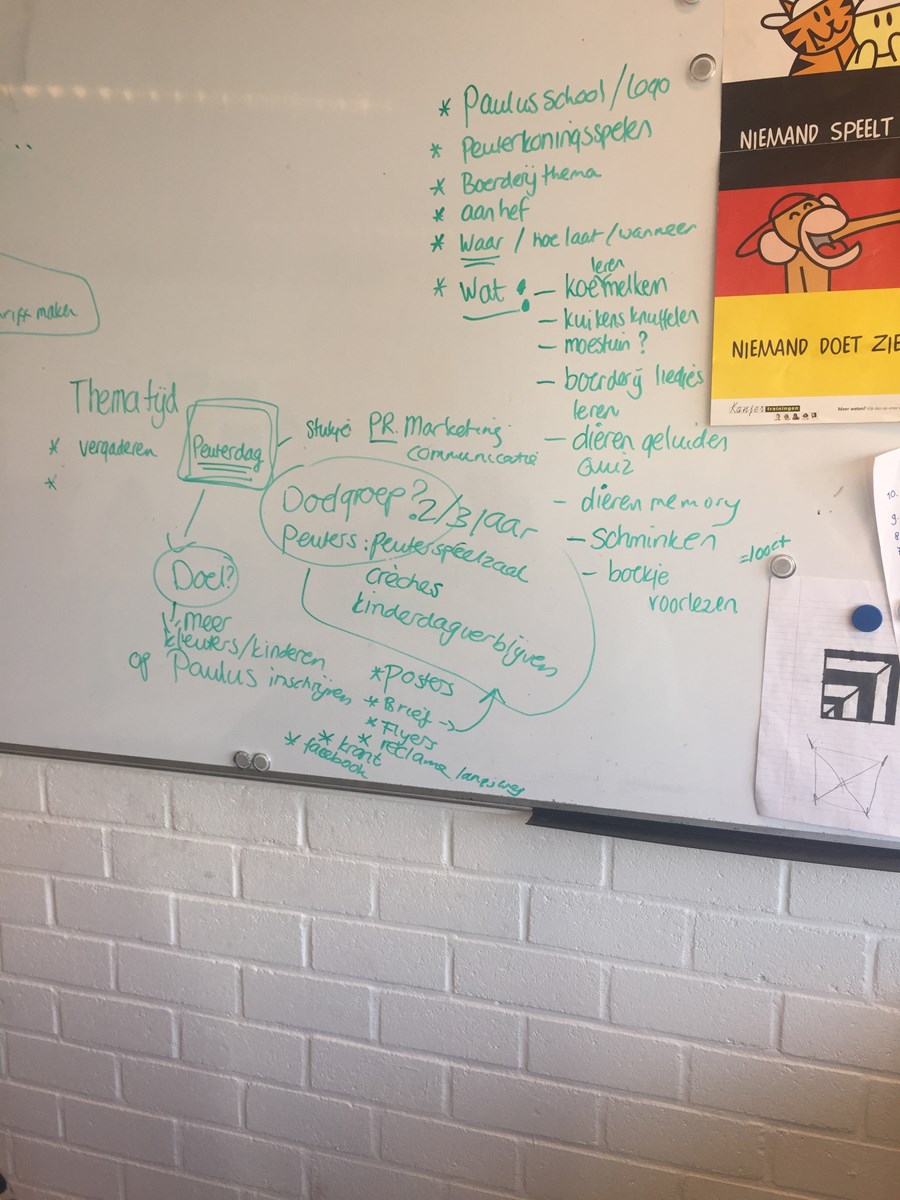 * Paulusschool/logo
* Peuterkoningsspelen
* Boerderij thema
* aanhef
* Waar / hoe laat / wanneer
* Wat: - koe leren melken
- kuikens knuffelen
- moestuin?
- boerderij liedjes
leren
- dieren geluiden
quiz
- dieren memory
- Schminken
- boekje
voorlezen
Thema tijd
* vergaderen
*
Peuterdag
stukje PR. Marketing
communicatie
Doelgroep? 2/3 jaar
Peuters: peuterspeelzaal
crèches
kinderdagverblijven
Doel?
meer
kleuters/kinderen
op Paulus inschrijven
* Posters
* Brief ->
* Flyers
* reclame langs weg
* krant
* facebook
rift maken
NIEMAND SPEELT
NIEMAND DOET ZIE
Kanjertrainingen
Meer weten?
10.
9-